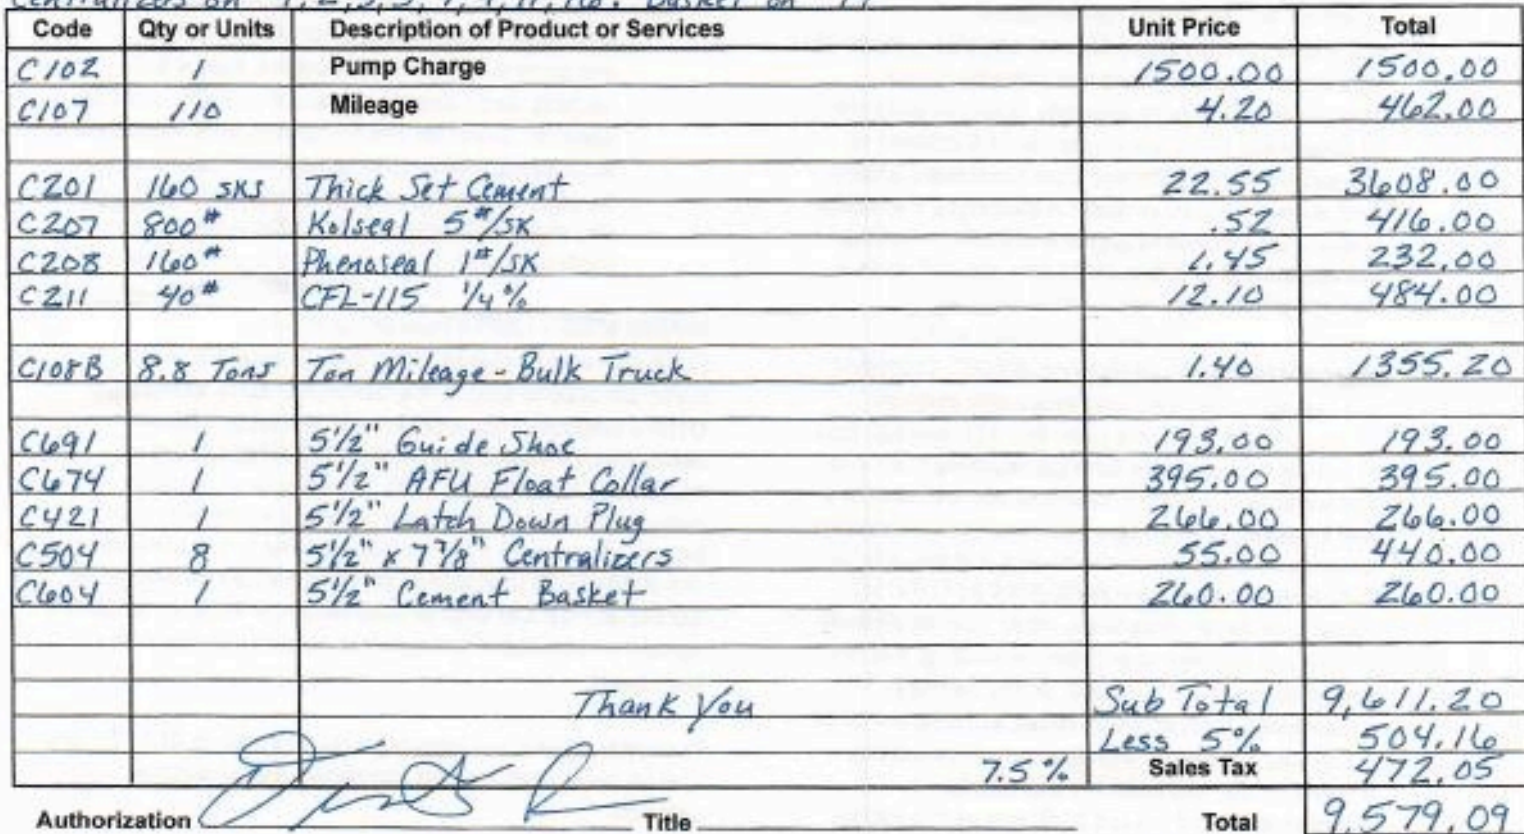 Centralizers on
Code Qty or Units Description of Product or Services Unit Price Total
C102 1 Pump Charge 1500.00 1500.00
C107 110 Mileage 4.20 462.00
C201 160 SKS Thick Set Cement 22.55 3608.00
C207 800# Kolseal 5#/SK .52 416.00
C208 160# Phenoseal 1#/SK 1.45 232.00
C211 40# CFL-115 1/4% 12.10 484.00
C108B 8.8 Tons Ton Mileage - Bulk Truck 1.40 1355.20
C691 1 5 1/2" Guide Shoe 193.00 193.00
C674 1 5 1/2" AFU Float Collar 395.00 395.00
C421 1 5 1/2" Latch Down Plug 266.00 266.00
C504 8 5 1/2" x 7 7/8" Centralizers 55.00 440.00
C604 1 5 1/2" Cement Basket 260.00 260.00
Thank You Sub Total 9,611.20
Less 5% 504.16
7.5% Sales Tax 472.05
Authorization Title Total 9,579.09